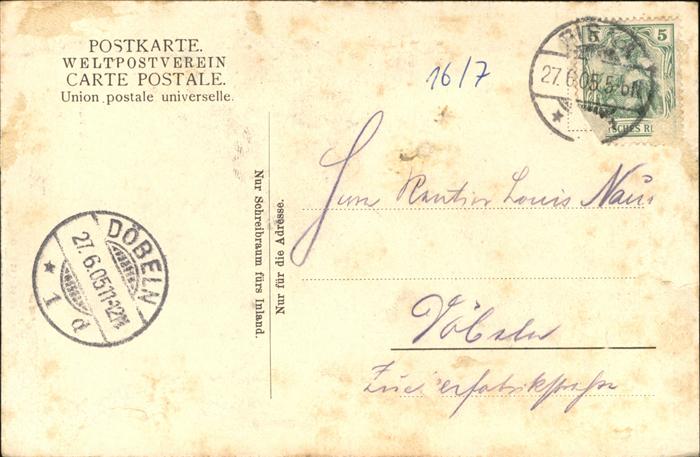 POSTKARTE.
WELTPOSTVEREIN
CARTE POSTALE.
Union postale universelle.
16/7
5 5
27.6.05.5-6N.
Nur Schreibraum fürs Inland.
Nur für die Adresse.
Herrn Rentier Louis
Döbeln
DÖBELN
27.6.05 11-12N
* 1 d